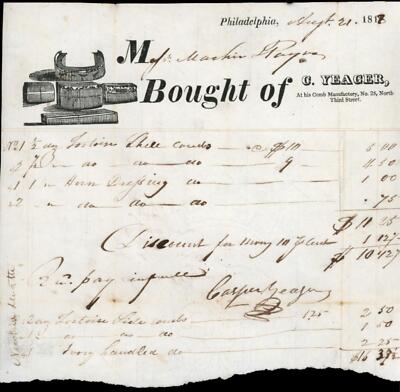 Philadelphia, Augt. 21. 181
M
Bought of C. YEAGER,
At his Comb Manufactory, No. 28, North
Third Street.
No 1 ½ doz Tortoise Shell combs $10 5 00
2 ½ do do do 9 4.50
1 1 Horn Dressing do 1 00
2 do do do .75
$ 10 25
Discount for money 10 pr Cent 1 12½
$ 10 12½
Recd pay in full
Casper Yeager
doz Tortoise Side combs 125 2 50
do do do 1 50
Ivory handled do 2 25
$16 37½